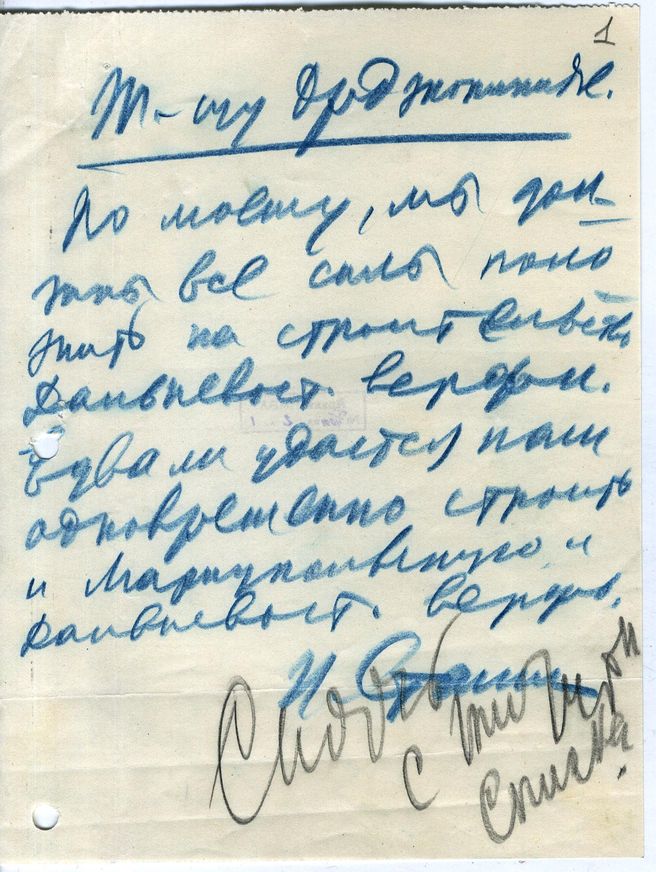 1
Т-щу Орджоникидзе.
По моему, мы дол-
жны все силы поло
жить на строительство
дальневост. верфи.
Едва ли удастся нам
одновременно строить
и Мариупольскую и
дальневост. верфи.
И. Сталин
с